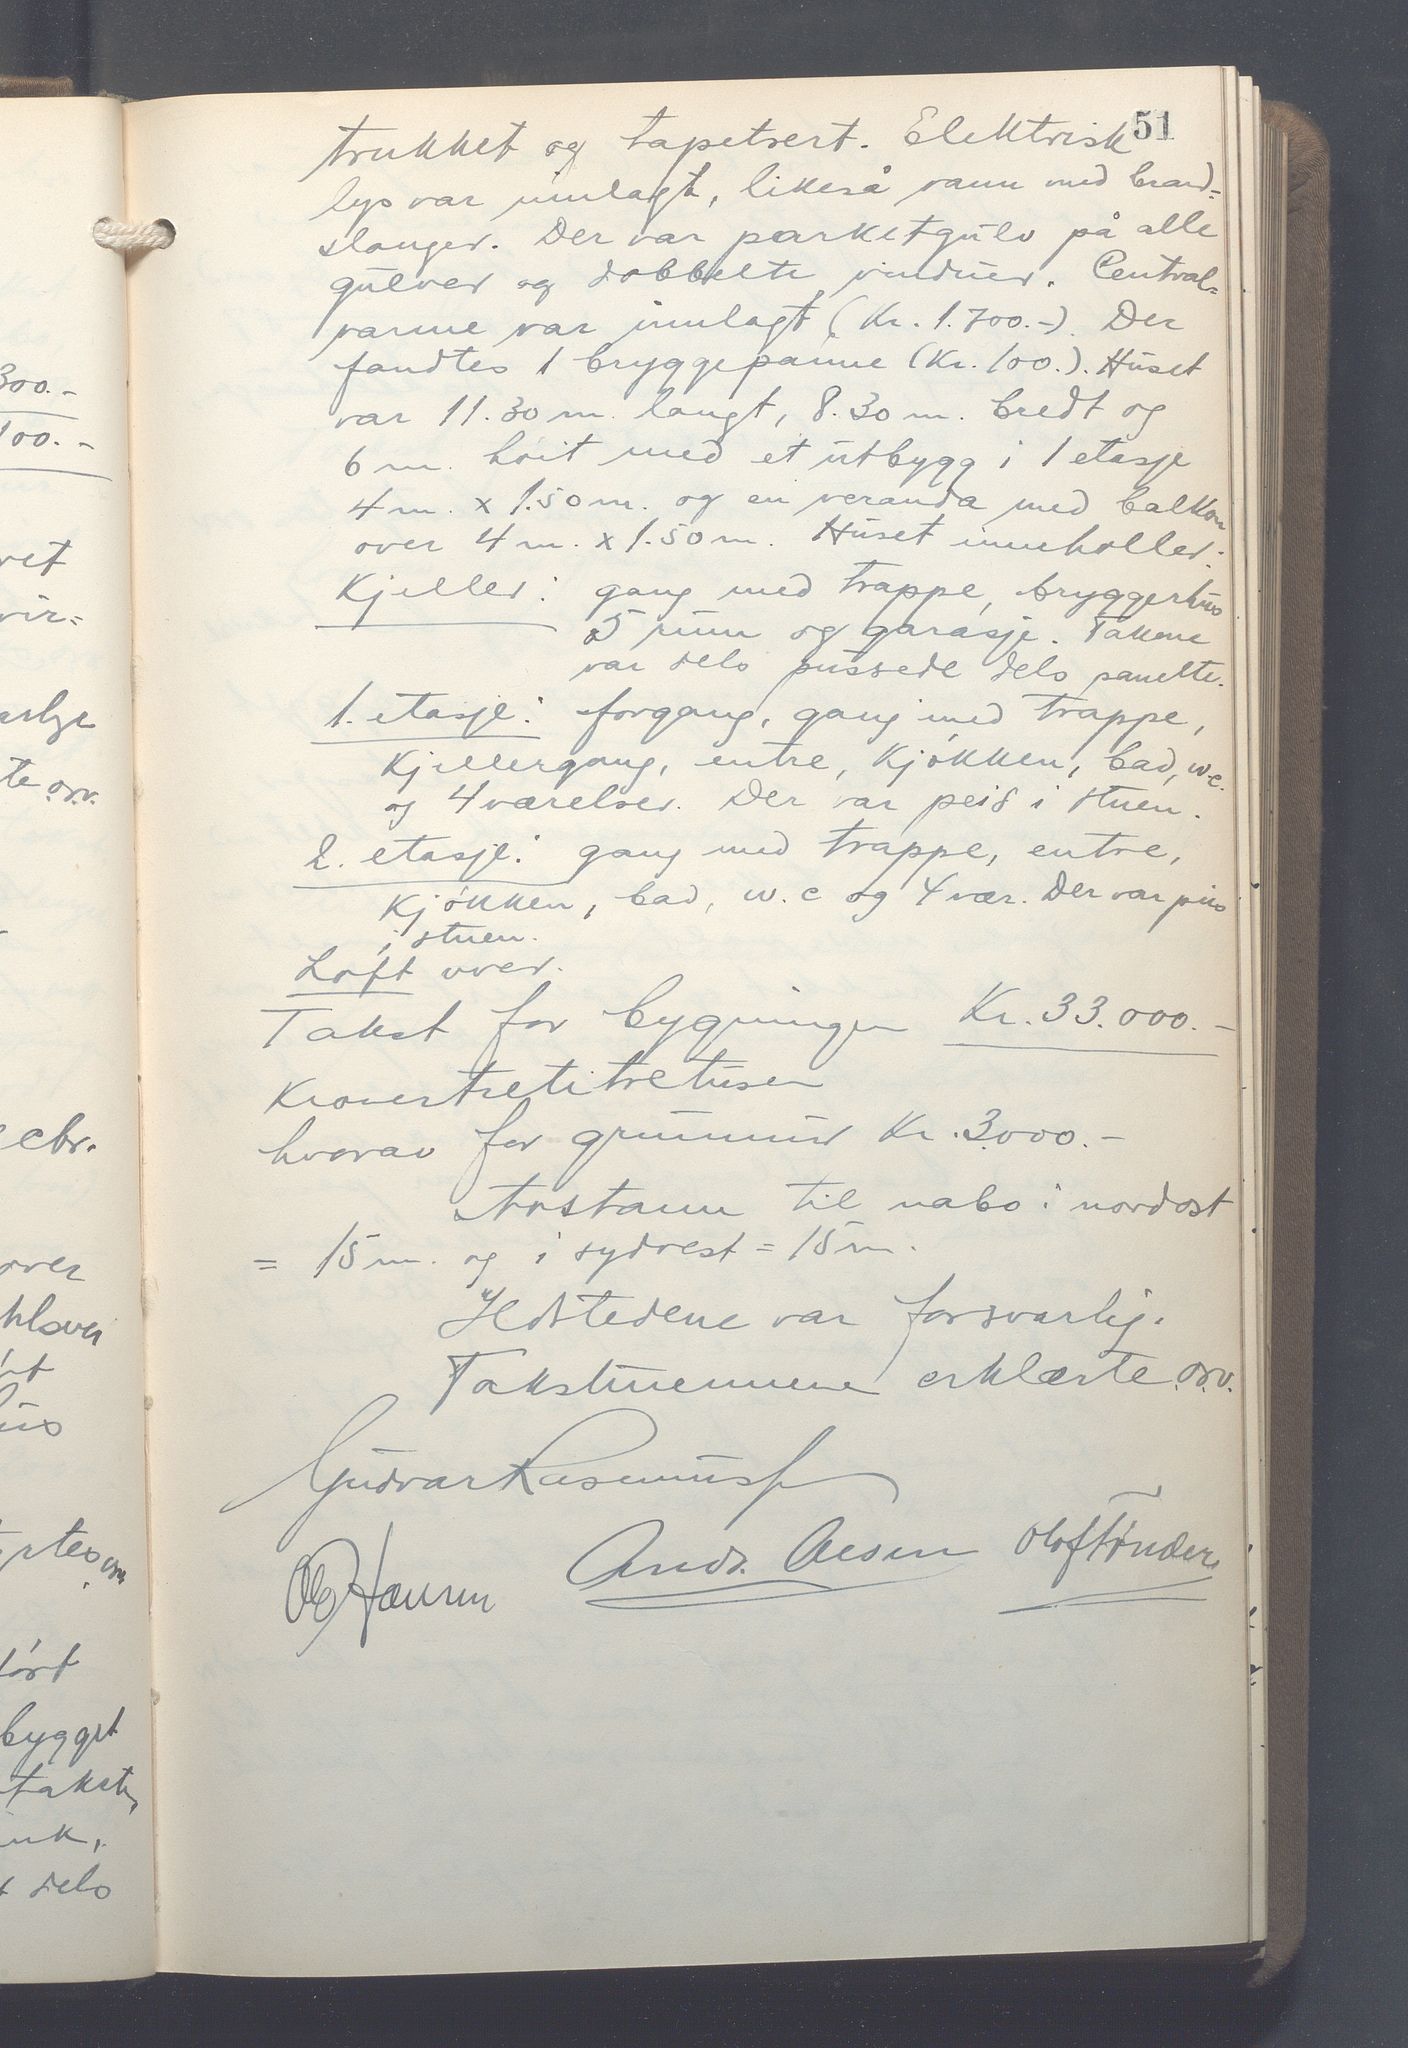 51
trukket og tapetsert. Elektrisk
lys var innlagt, likeså vann med brand=
slanger. Der var parketgulv på alle
gulver og dobbelte vinduer. Central=
varme var innlagt (Kr. 1.700.-). Der
fandtes 1 bryggepanne (Kr. 100.). Huset
var 11.30 m. langt, 8.30 m. bredt og
6 m. høit med et utbygg i 1 etasje
4 m. x 1.50 m. og en veranda med balkon
over 4 m. x 1.50 m. Huset inneholler:
Kjeller: gang med trappe, bryggerhus
5 rum og garasje. Takene
var dels pussede dels panelte.
1. etasje: forgang, gang med trappe,
Kjellergang, entre, Kjøkken, bad, w.c.
og 4 værelser. Der var peis i stuen.
2. etasje: gang med trappe, entre,
Kjøkken, bad, w.c og 4 vær. Der var peis
i stuen.
Loft over.
Takst for bygningen Kr. 33.000.-
Kronertretitretusen
hvorav for grunnmur Kr. 3.000.-
Avstann til nabo i nordost
= 15 m. og i sydvest = 15 m.
Ildstedene var forsvarlig.
Takstmennene erklærte o.s.v.
Gudvar Rasmuss
Ole Hansen Andr. Olsen Olaf Tønder
300.-
100.-
vet
vir=
te o.s.v.
ebr.
over
ført
bygget
takst,
dels